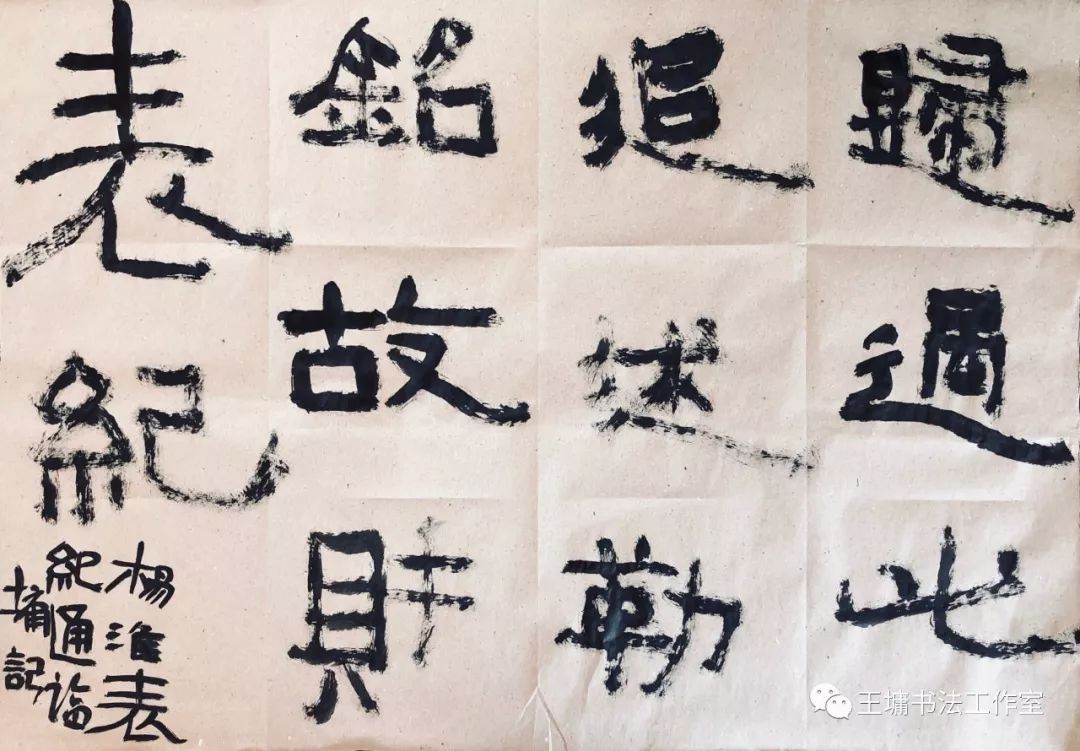 歸過此
追述勒
銘故財
表紀
楊淮表
紀通临
墉記
王墉书法工作室